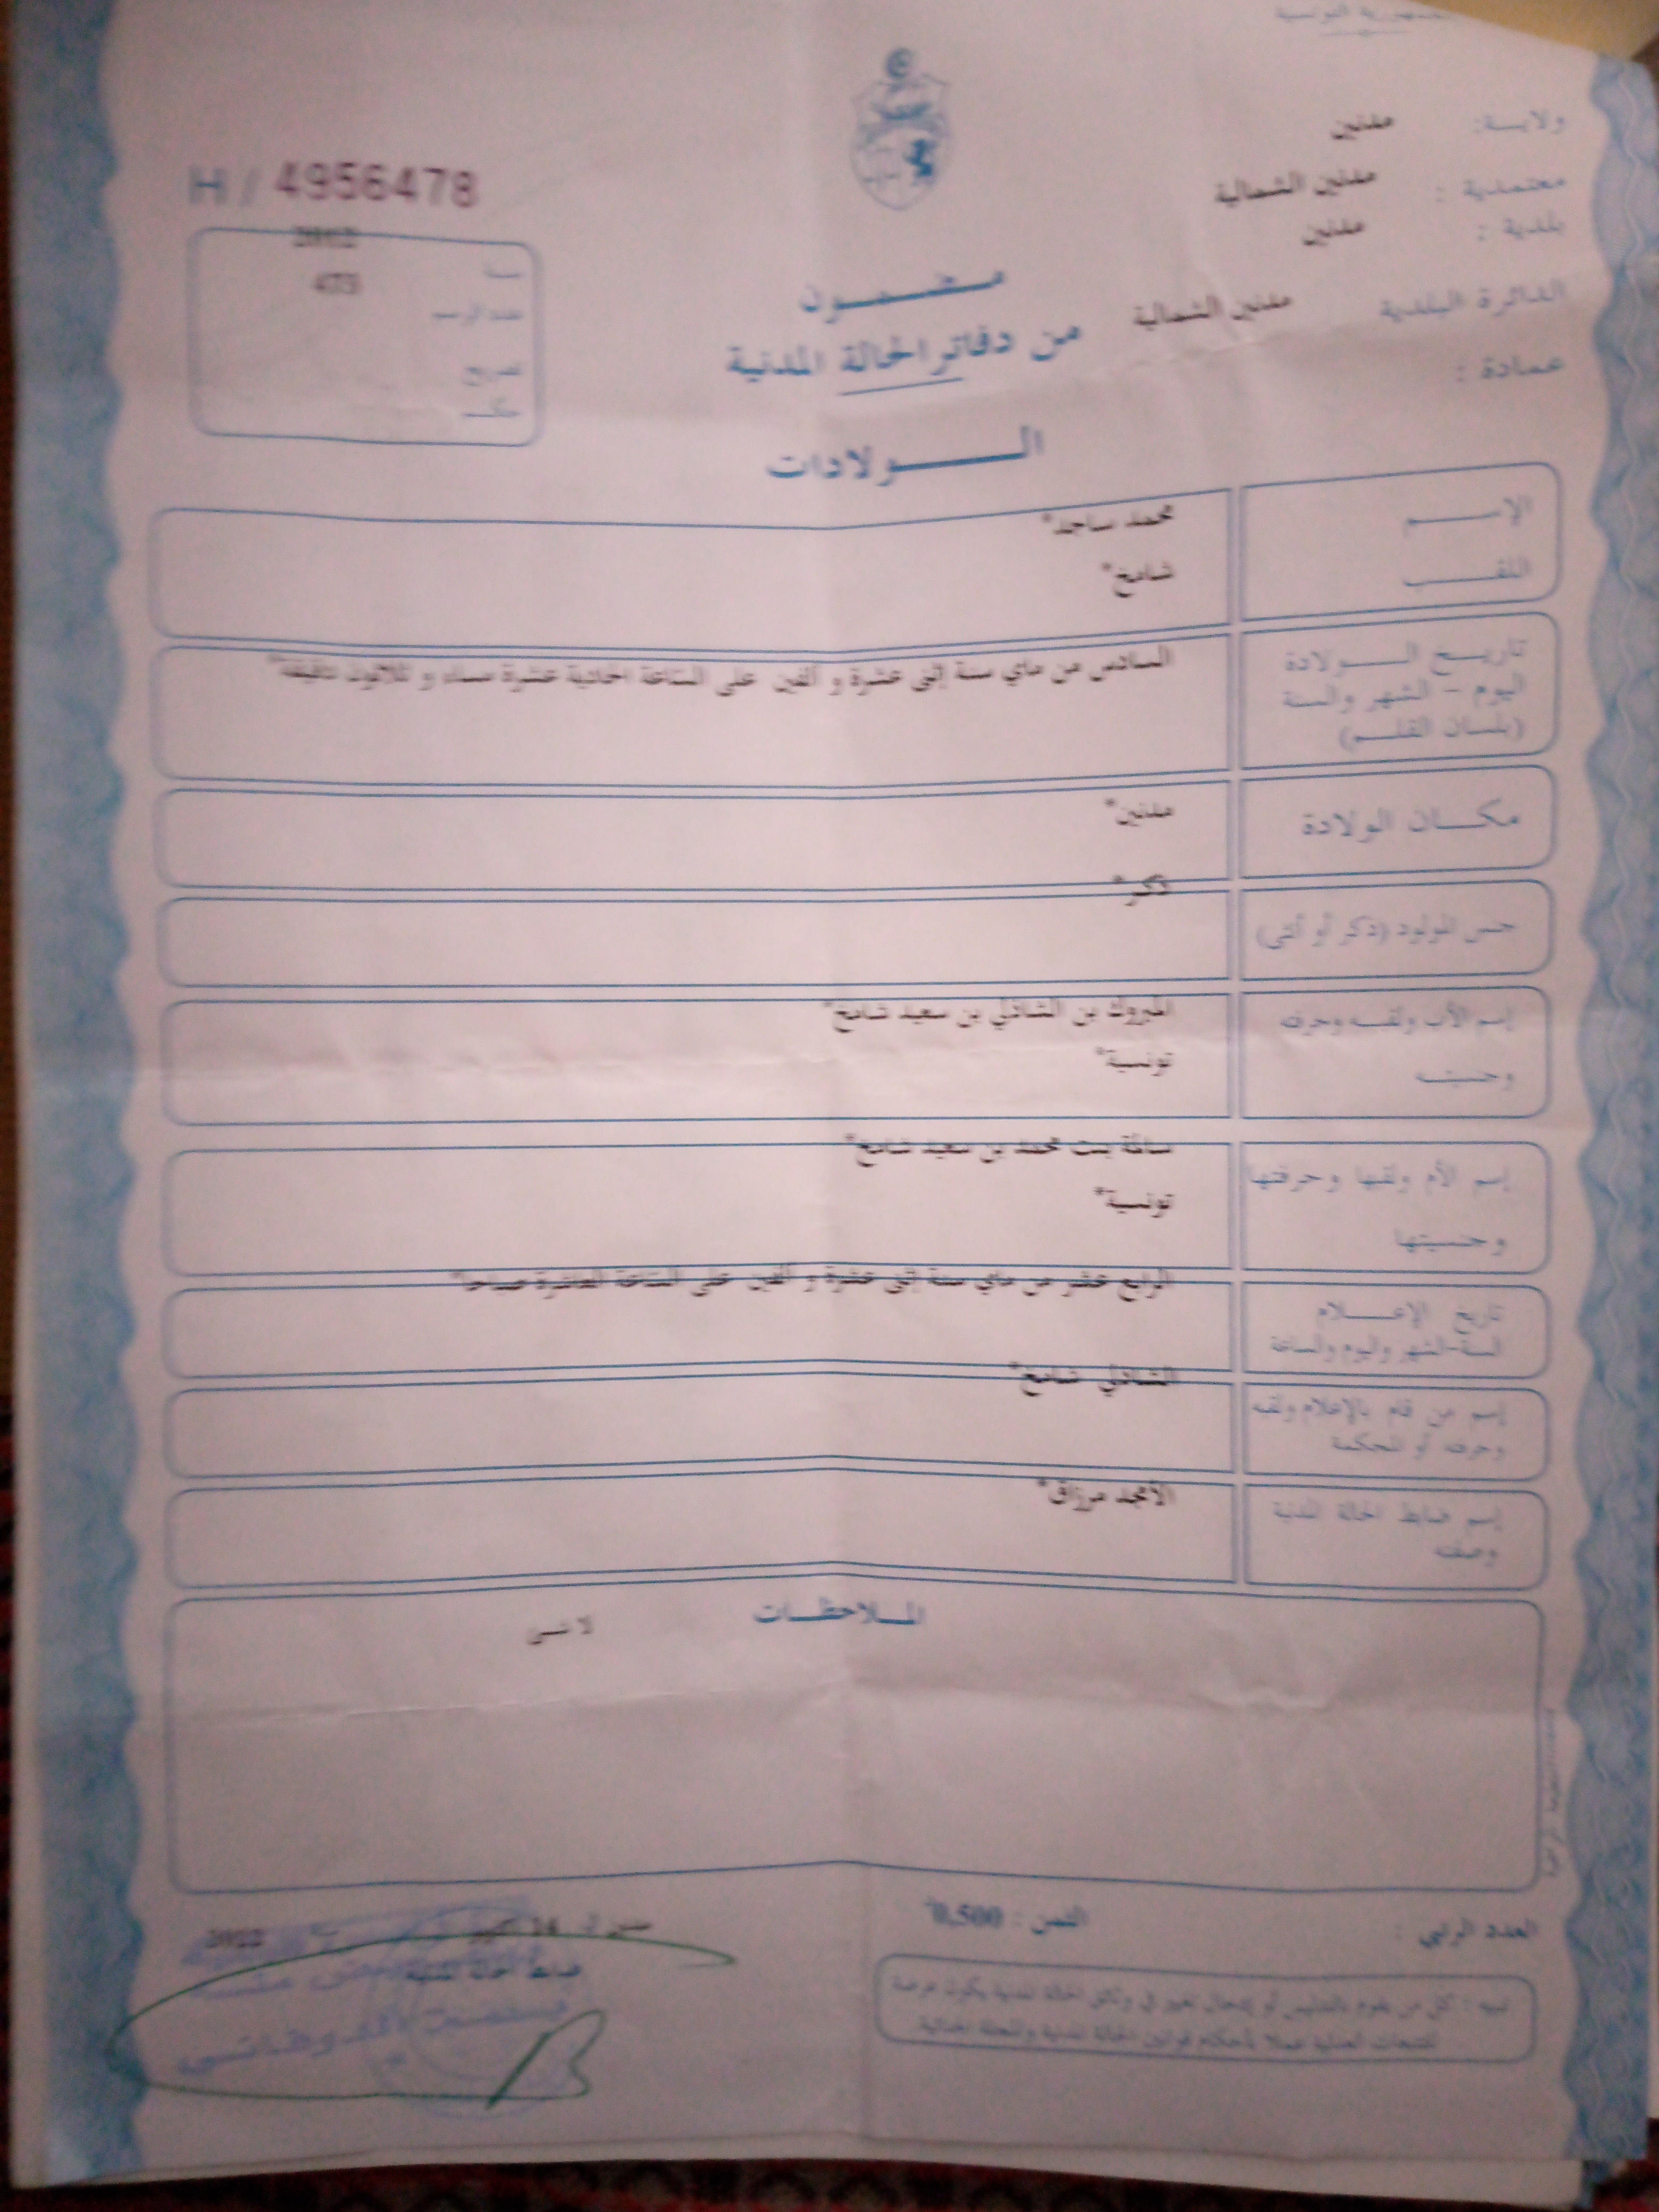 الجمهورية التونسية
ولايـــة: مدنين
معتمدية : مدنين الشمالية
بلدية : مدنين
الدائرة البلدية مدنين الشمالية
عمادة :
H / 4956478
سنة 2012
عدد الرسم 473
تصريح
حكم
مـضـمـــون
من دفاتر الحالة المدنية
الـــــولادات
الإســــم محمد ساجد*
اللقـــب شامخ*
تاريــخ الـــولادة السادس من ماي سنة إثنى عشرة و ألفين على الساعة الحادية عشرة مساء و ثلاثون دقيقة*
اليوم - الشهر والسنة
(بلسان القلـــم)
مكـــان الولادة مدنين*
جنس المولود (ذكر أو أنثى) ذكر*
إسم الأب ولقبـــه وحرفته المبروك بن الشاذلي بن سعيد شامخ*
وجنسيتـــه تونسية*
إسم الأم ولقبها وحرفتها بنت محمد بن سعيد شامخ*
وجنسيتها تونسية*
تاريخ الإعـــلام الرابع عشر من ماي سنة إثنى عشرة و ألفين على الساعة العاشرة صباحا*
السنة-الشهر واليوم والساعة
إسم من قام بالإعلام ولقبه الشاذلي شامخ*
وحرفته أو المحكمة
إسم ضابط الحالة المدنية الأمجد مرزاق*
وصفته
المـــلاحظـــات
لا شىء
العدد الرتبي :
الثمن : 0,500
2022
ضابط الحالة المدنية
تنبيه : كل من يقوم بالتدليس أو إدخال تغيير في وثائق الحالة المدنية يكون عرضة
للتتبعات العدلية عملا بأحكام قوانين الحالة المدنية والمجلة الجنائية.